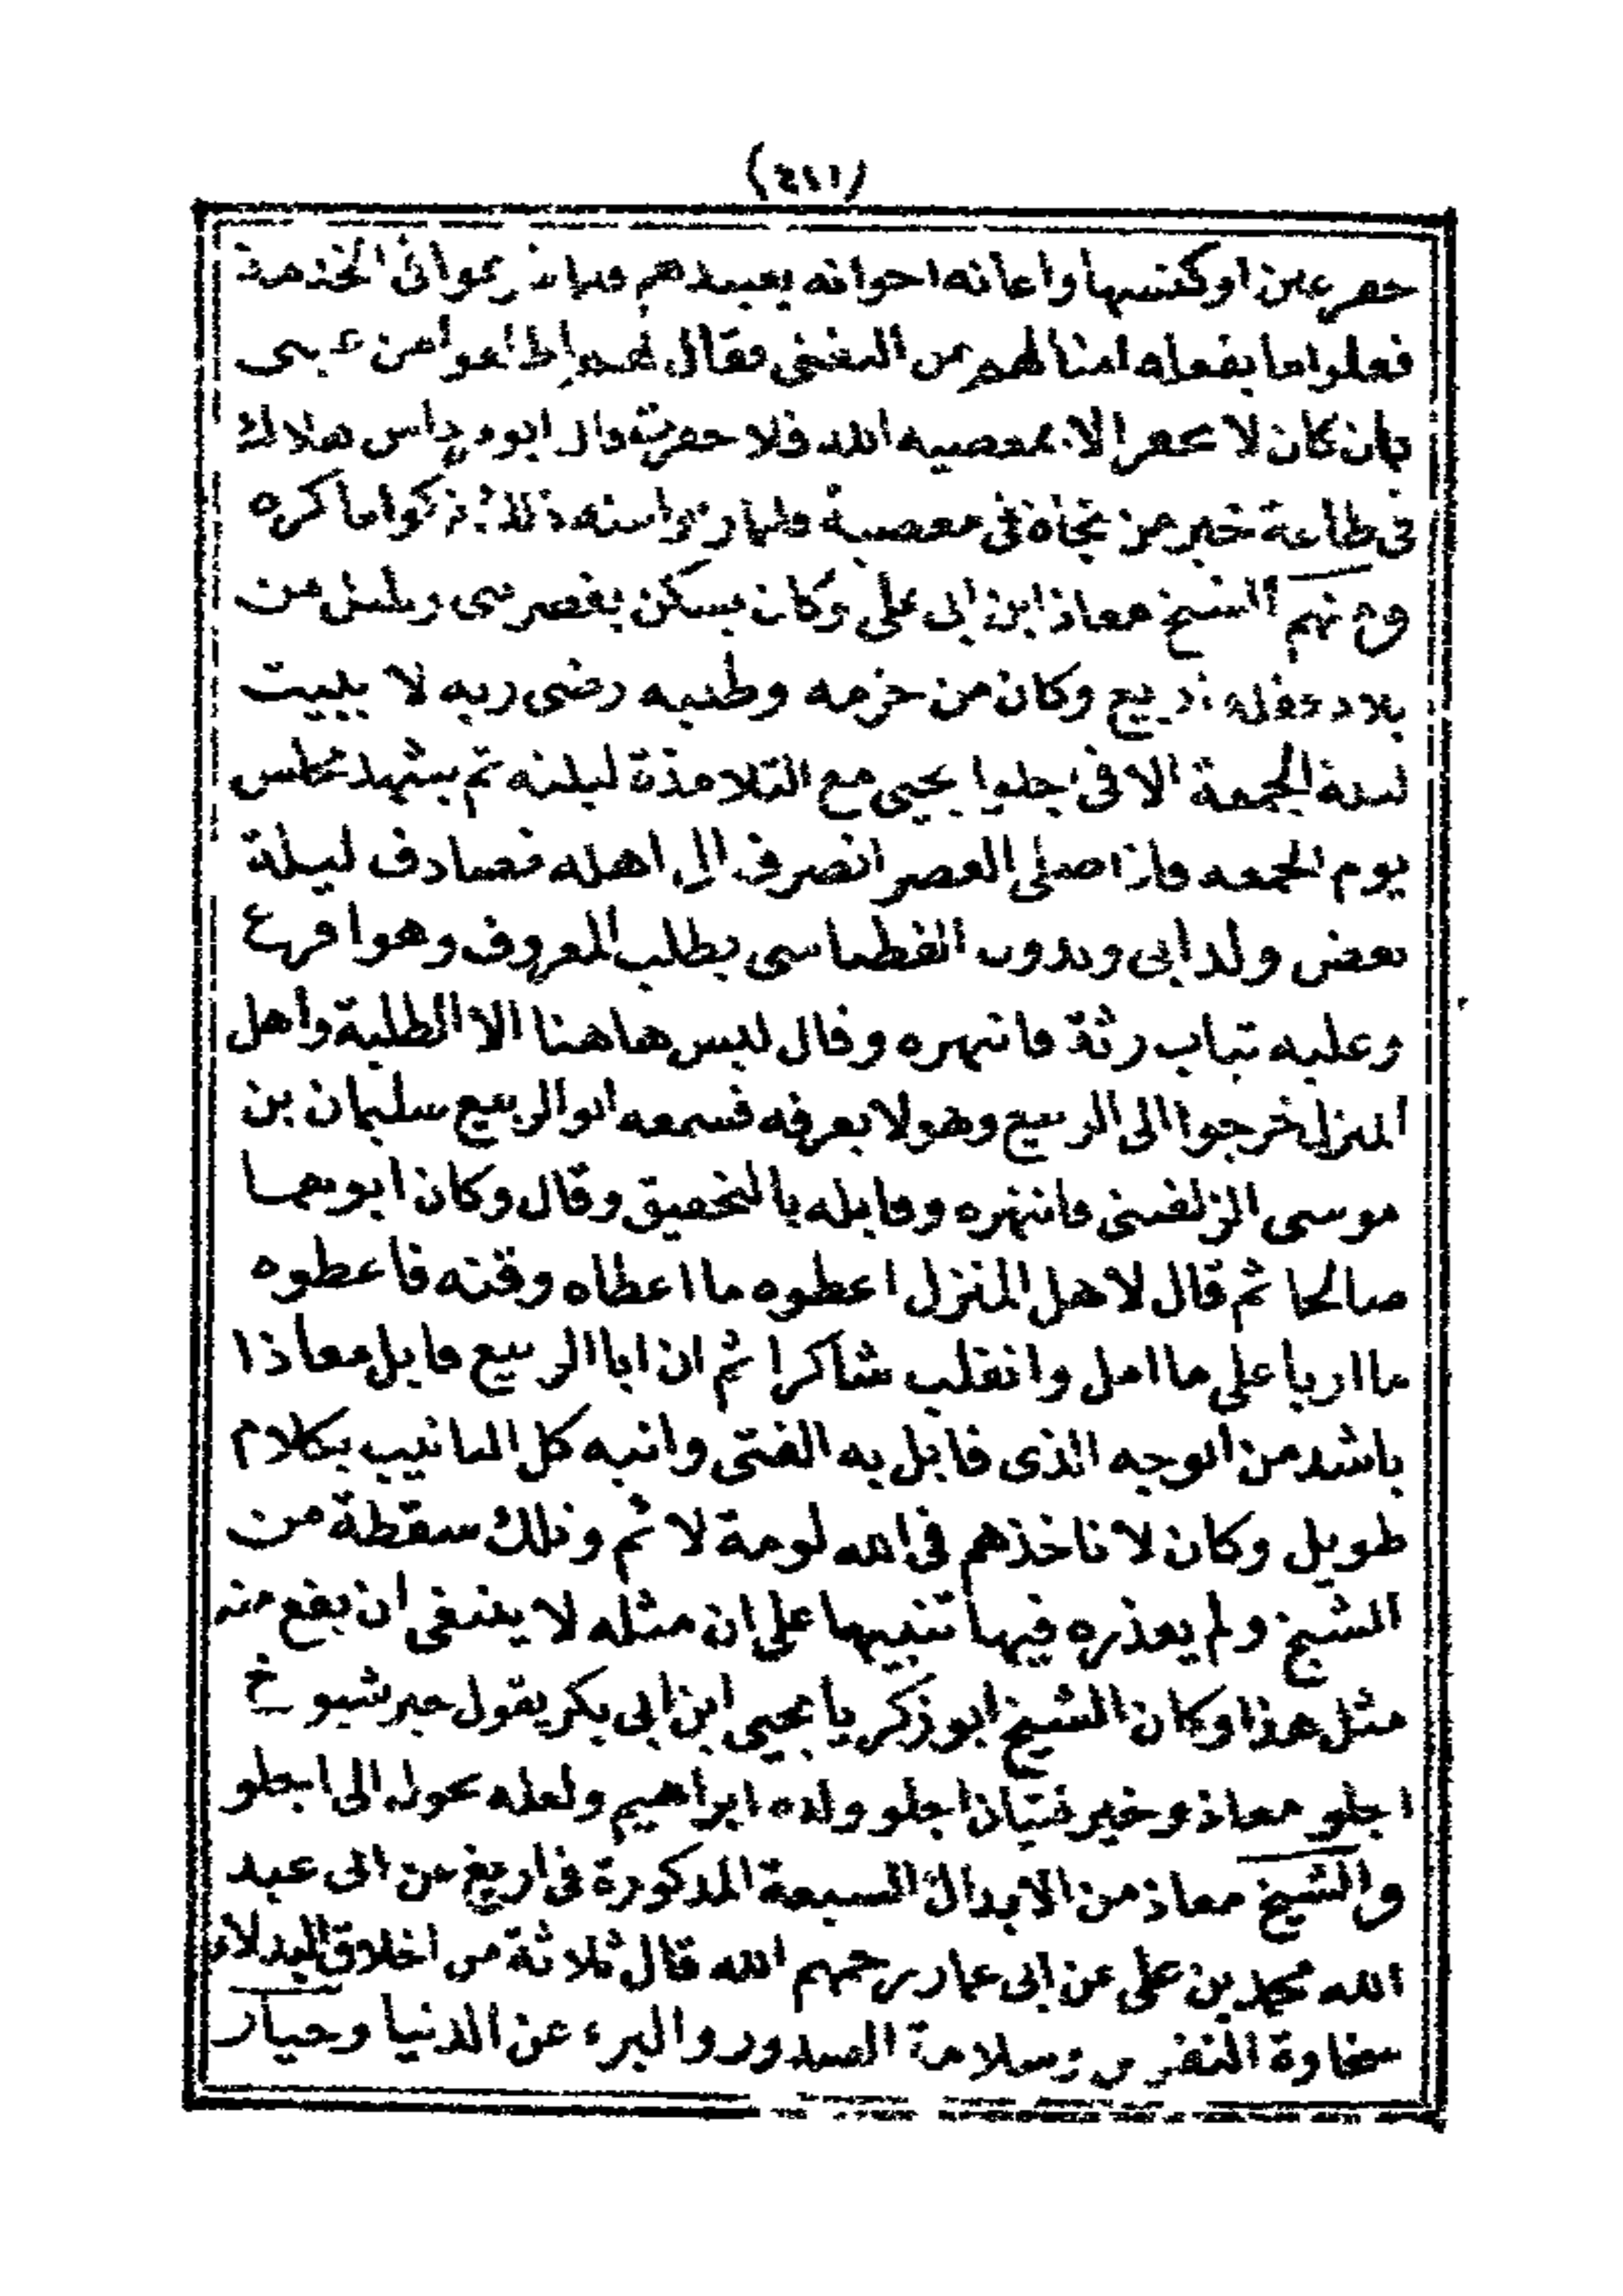 (٤١١)
حفر عين او كنسها واعانه اخوانه بعبيدهم فلما شرعوا فى الخدمة
فعلوا ما يفعله امثالهم من التغنى فقال لهم اطلعوا من عينى
فان كان لا تحفر الا بمعصيه الله فلا حفرت قال ابو مرداس هلاك
فى طاعة خير من نجاة فى معصية فلما راوا منه ذلك تركوا ما كره
ومنهم الشيخ معاذ ابن ابى على وكان يسكن بقصر بنى وليل من
بلاد اريغ وكان من حزمه وطلبه رضى ربه لا يبيت
ليلة الجمعة الا فى اجلوا يحيى مع التلامذة ليلته ثم يشهد مجلس
يوم الجمعه فاذا صلى العصر انصرف الى اهله فصادف ليلة
بعض ولد ابى ويدون الفطناسى يطلب المعروف وهو اقرع
وعليه ثياب رثة فانتهره وقال ليس هاهنا الا الطلبة واهل
المنزل خرجوا الى الربيع وهو لا يعرفه فسمعه ابو الربيع سليمان بن
موسى الزلفينى فانتهره وقابله بالتحقيق وقال وكان ابوهما
صالحا ثم قال لاهل المنزل اعطوه ما اعطاه وقته فاعطوه
ما اربا على ما امل وانقلب شاكرا ثم ان ابا الربيع قابل معاذا
باشد من الوجه الذى قابل به الفتى وانبه كل التانيب بكلام
طويل وكان لا تاخذهم فى الله لومة لائم وتلك سقطة من
الشيخ ولم يعذره فيها تنبيها على ان مثله لا ينبغى ان يقع منه
مثل هذا وكان الشيخ ابو زكريا يحيى ابن ابى بكر يقول خير شيوخ
اجلو معاذ وخير فتيان اجلو ولده ابراهيم ولعله تحول الى اجلو
والشيخ معاذ من الابدال السبعة المذكورة فى اريغ عن ابى عبد
الله محمد بن على عن ابى عمار رحمهم الله قال ثلاثة من اخلاق البدلاء
سخاوة النفس وسلامة الصدور والبرء عن الدنيا وخيار